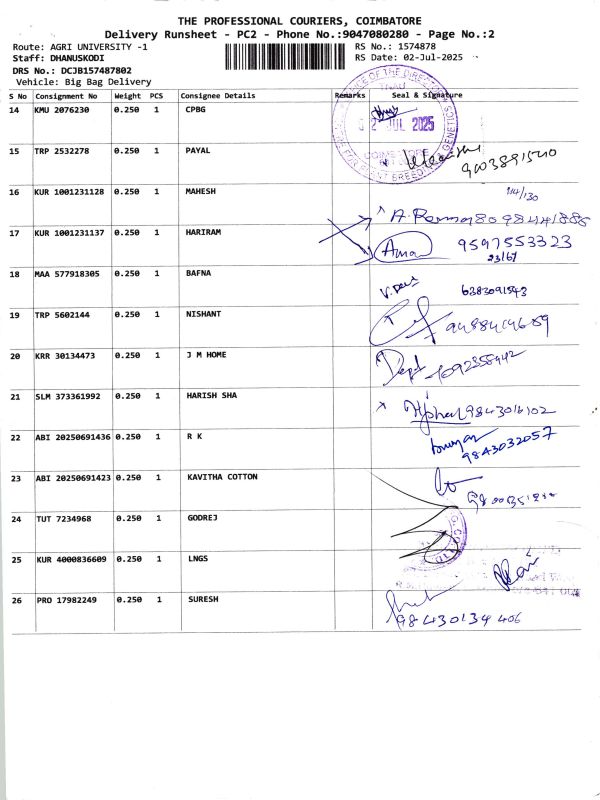 THE PROFESSIONAL COURIERS, COIMBATORE
Delivery Runsheet - PC2 - Phone No.:9047080280 - Page No.:2
Route: AGRI UNIVERSITY -1
Staff: DHANUSKODI
DRS No.: DCJB157487802
Vehicle: Big Bag Delivery
RS No.: 1574878
RS Date: 02-Jul-2025
S No Consignment No Weight PCS Consignee Details Remarks Seal & Signature
14 KMU 2076230 0.250 1 CPBG
2 JUL 2025
15 TRP 2532278 0.250 1 PAYAL
16 KUR 1001231128 0.250 1 MAHESH
914/130
17 KUR 1001231137 0.250 1 HARIRAM
9597553323
23/67
18 MAA 577918305 0.250 1 BAFNA
6383091543
19 TRP 5602144 0.250 1 NISHANT
20 KRR 30134473 0.250 1 J M HOME
21 SLM 373361992 0.250 1 HARISH SHA
22 ABI 20250691436 0.250 1 R K
9843032057
23 ABI 20250691423 0.250 1 KAVITHA COTTON
24 TUT 7234968 0.250 1 GODREJ
25 KUR 4000836609 0.250 1 LNGS
26 PRO 17982249 0.250 1 SURESH
98430134406